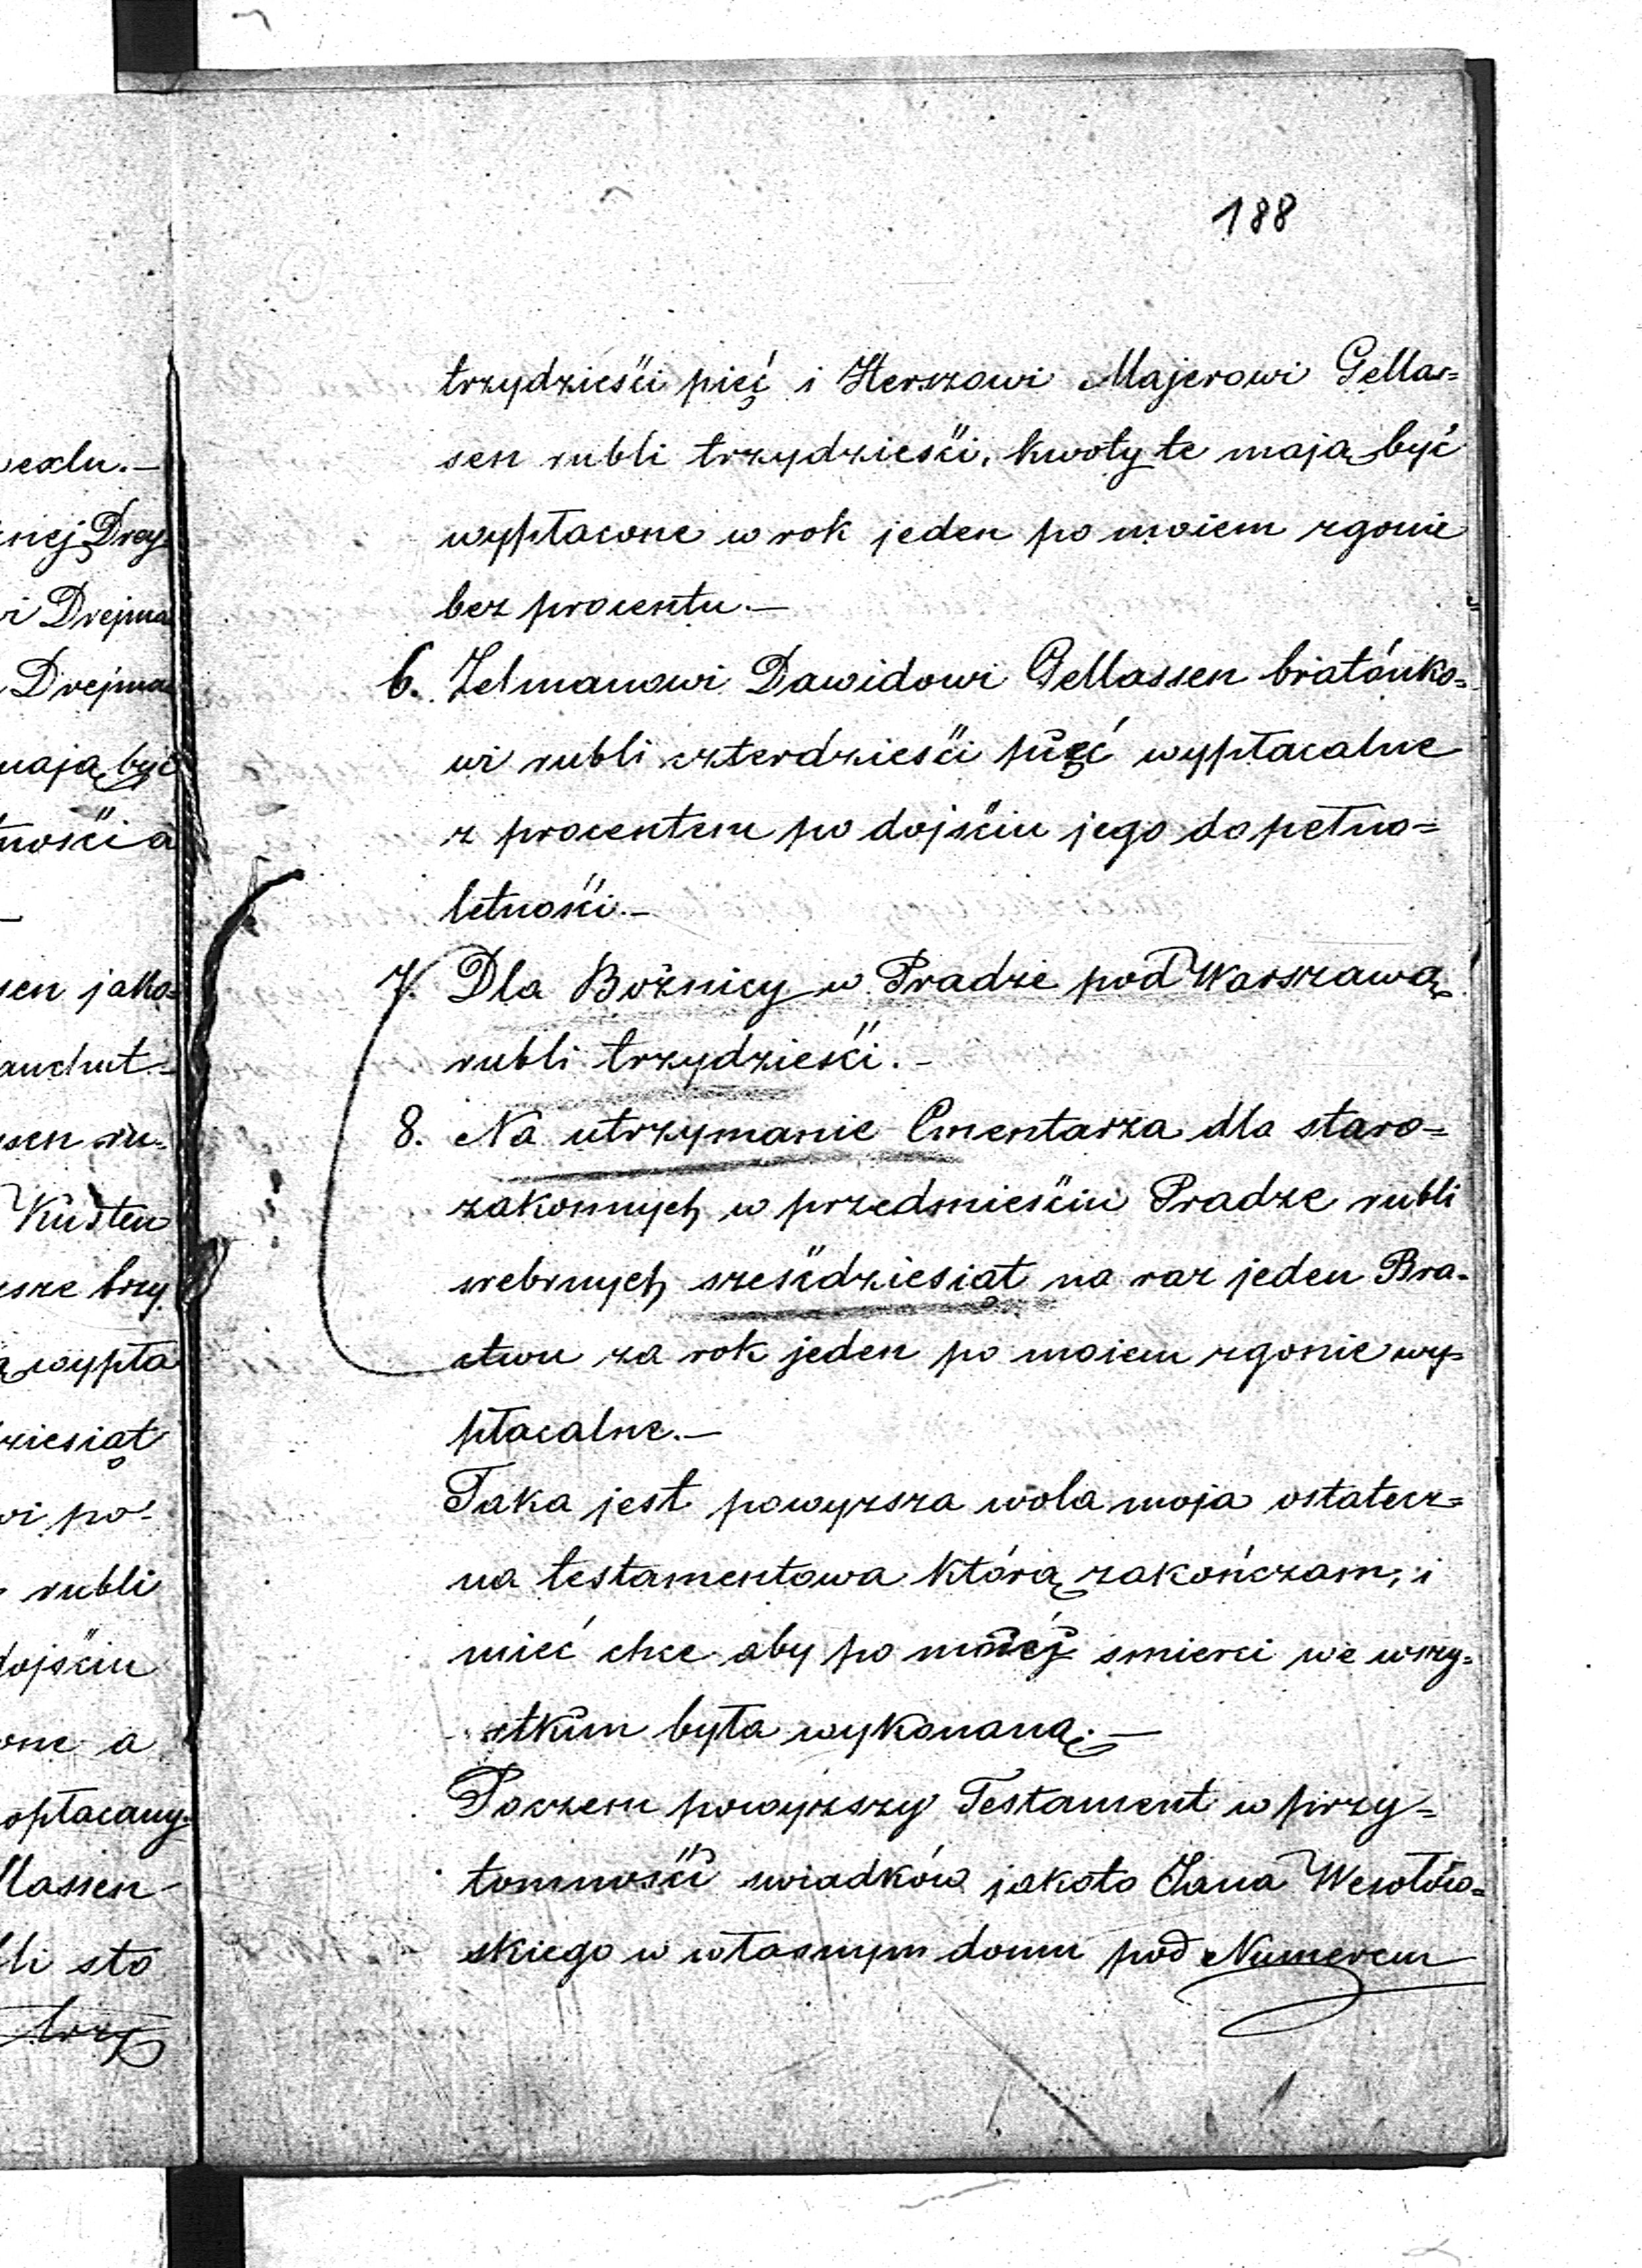 188
trzydzieści pięć i Herszowi Majerowi Gellas=
sen rubli trzydzieści, kwoty te mają być
wypłacone w rok jeden po moiem zgonie
bez procentu.—
6. Zelmanowi Dawidowi Gellassen bratánko=
wi rubli czterdzieści pięć wypłacalne
z procentem po dojściu jego do pełno=
letności.—
7. Dla Bóżnicy w Pradze pod Warszawą
rubli trzydzieści.—
8. Na utrzymanie Cmentarza dla staro=
zakonnych w przedmieściu Pradze rubli
srebrnych sześćdziesiąt na raz jeden Bra=
ctwu za rok jeden po moiem zgonie wy=
płacalne.—
Taka jest powyzsza wola moja ostatecz=
na testamentowa którą zakończam, i
mieć chce aby po moiéj smierci we wszy=
stkim była wykonaną.—
Poczem powyższy Testament w przy=
tomności swiadków jakoto Jana Wesołów=
skiego w własnym domu pod Numerem
wexlu.—
Drey
i Drejma
Drejma
mają być
ności a
sen jako=
sen ru=
Kusten
wypła
dziesiąt
wi po=
rubli
dojściu
one a
opłacany
llassen
li sto
trzy